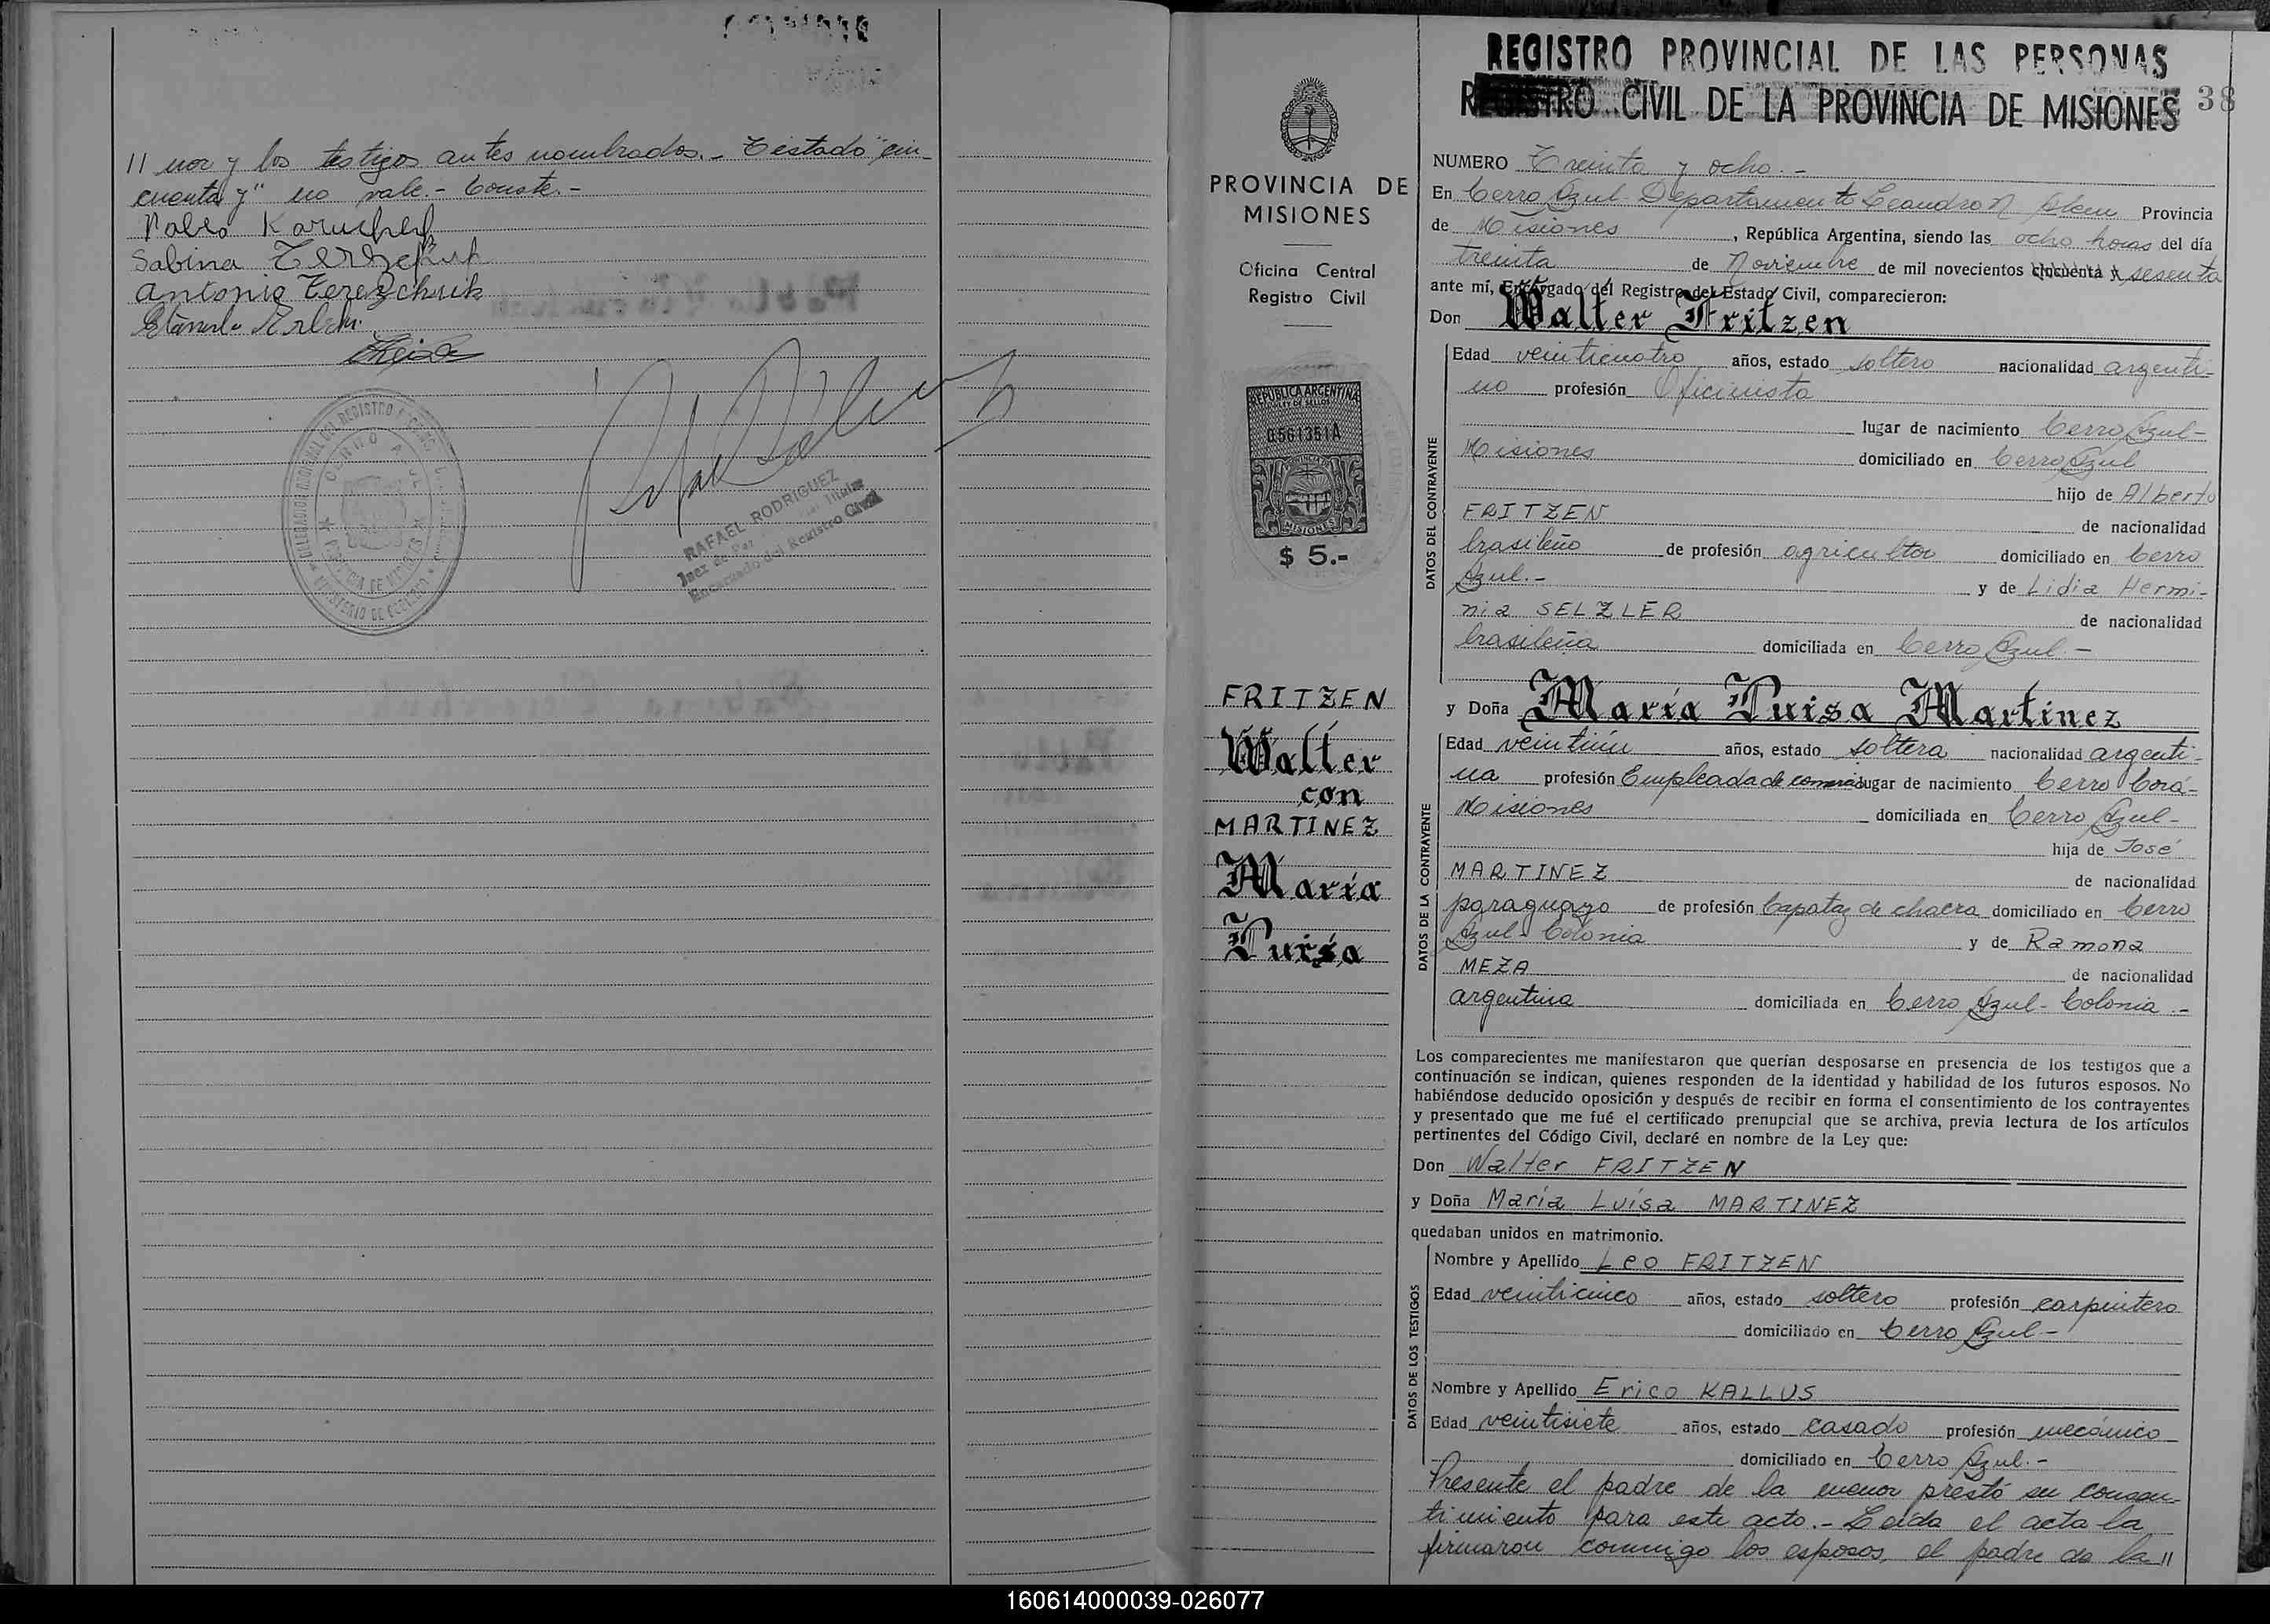 // nor y los testigos antes nombrados.- Testado "cin-
cuenta y" no vale.- Conste.-
Sabina
Antonio Terezchuk
RAFAEL RODRIGUEZ
Juez de Paz Titular
Encargado del Registro Civil
PROVINCIA DE
MISIONES
Oficina Central
Registro Civil
REPUBLICA ARGENTINA
LEY DE SELLOS
0561351A
MISIONES
$ 5.-
FRITZEN
Walter
con
MARTINEZ
María
Luisa
REGISTRO PROVINCIAL DE LAS PERSONAS
REGISTRO CIVIL DE LA PROVINCIA DE MISIONES
38
NUMERO Treinta y ocho.-
En Cerro Azul Departamento Leandro N Alem Provincia
de Misiones, República Argentina, siendo las ocho horas del día
treinta de Noviembre de mil novecientos cincuenta y sesenta
ante mí, Encargado del Registro del Estado Civil, comparecieron:
Don Walter Fritzen
DATOS DEL CONTRAYENTE
Edad veinticuatro años, estado soltero nacionalidad argenti-
no profesión Oficinista
lugar de nacimiento Cerro Azul-
Misiones domiciliado en Cerro Azul
hijo de Alberto
FRITZEN de nacionalidad
brasileño de profesión agricultor domiciliado en Cerro
Azul.- y de Lidia Hermi-
nia SELZLER de nacionalidad
brasileña domiciliada en Cerro Azul.-
y Doña María Luisa Martinez
DATOS DE LA CONTRAYENTE
Edad veintiún años, estado soltera nacionalidad argenti-
na profesión Empleada de comercio lugar de nacimiento Cerro Corá-
Misiones domiciliada en Cerro Azul-
hija de José
MARTINEZ de nacionalidad
paraguayo de profesión Capataz de chacra domiciliado en Cerro
Azul- Colonia y de Ramona
MEZA de nacionalidad
argentina domiciliada en Cerro Azul- Colonia.-
Los comparecientes me manifestaron que querían desposarse en presencia de los testigos que a
continuación se indican, quienes responden de la identidad y habilidad de los futuros esposos. No
habiéndose deducido oposición y después de recibir en forma el consentimiento de los contrayentes
y presentado que me fué el certificado prenupcial que se archiva, previa lectura de los artículos
pertinentes del Código Civil, declaré en nombre de la Ley que:
Don Walter FRITZEN
y Doña María Luisa MARTINEZ
quedaban unidos en matrimonio.
DATOS DE LOS TESTIGOS
Nombre y Apellido Leo FRITZEN
Edad veinticinco años, estado soltero profesión carpintero
domiciliado en Cerro Azul-
Nombre y Apellido Erico KALLUS
Edad veintisiete años, estado casado profesión mecánico
domiciliado en Cerro Azul.-
Presente el padre de la menor prestó su consen-
timiento para este acto.- Leída el acta la
firmaron conmigo los esposos, el padre de la //
160614000039-026077